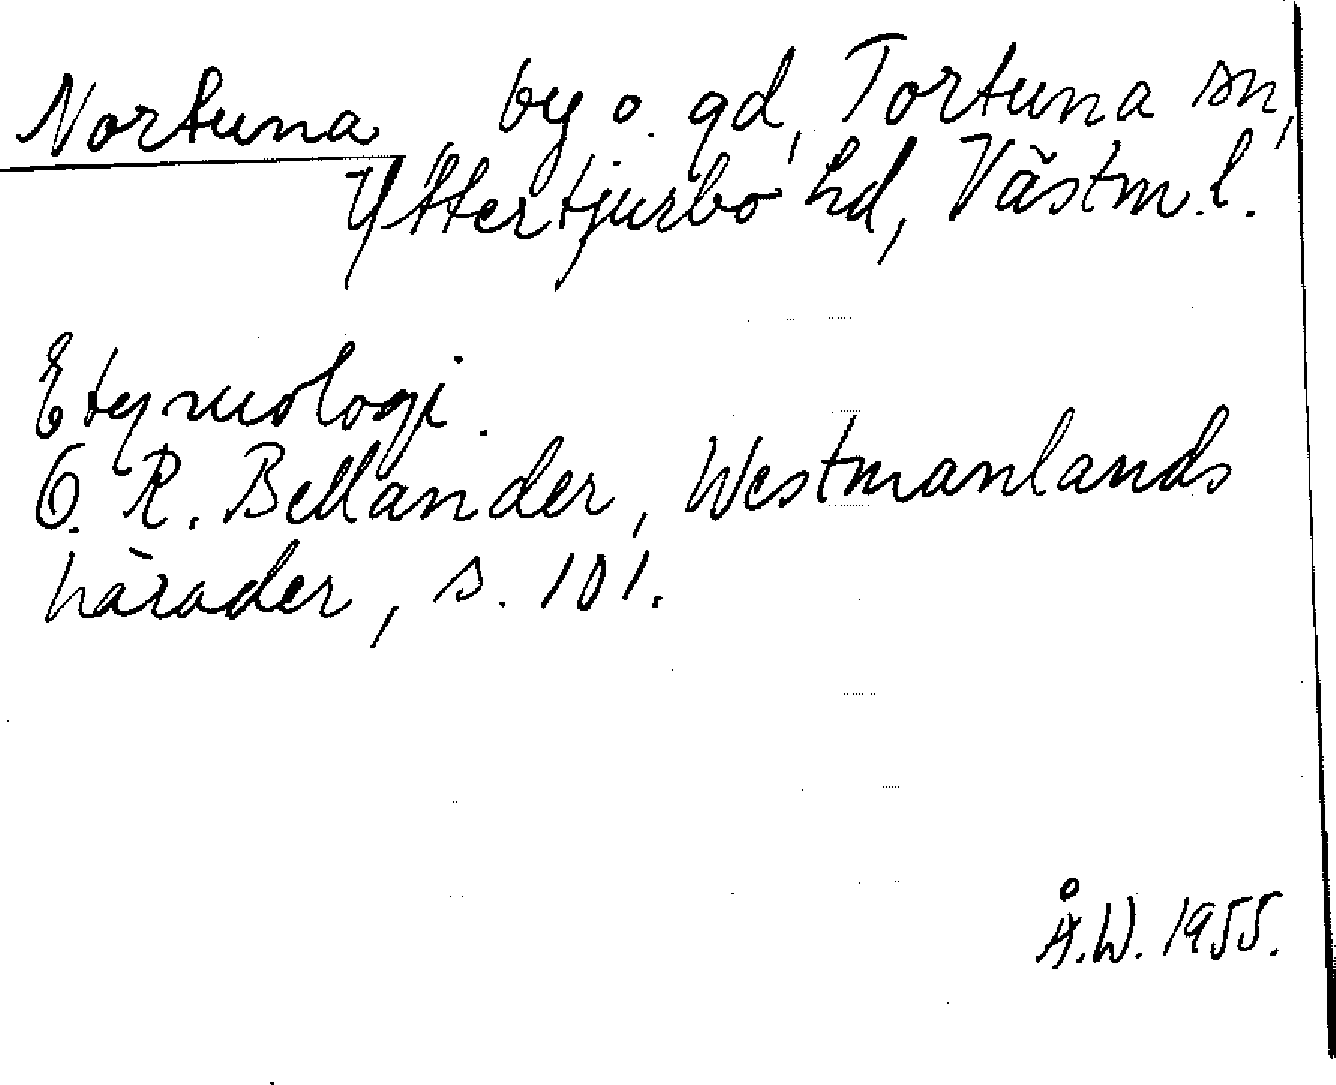 Nortuna by o. gd, Tortuna sn,
Yttertjurbo hd, Västm. l.
Etymologi.
O. R. Bellander, Westmanlands
härader, s. 101.
Å.W. 1955.